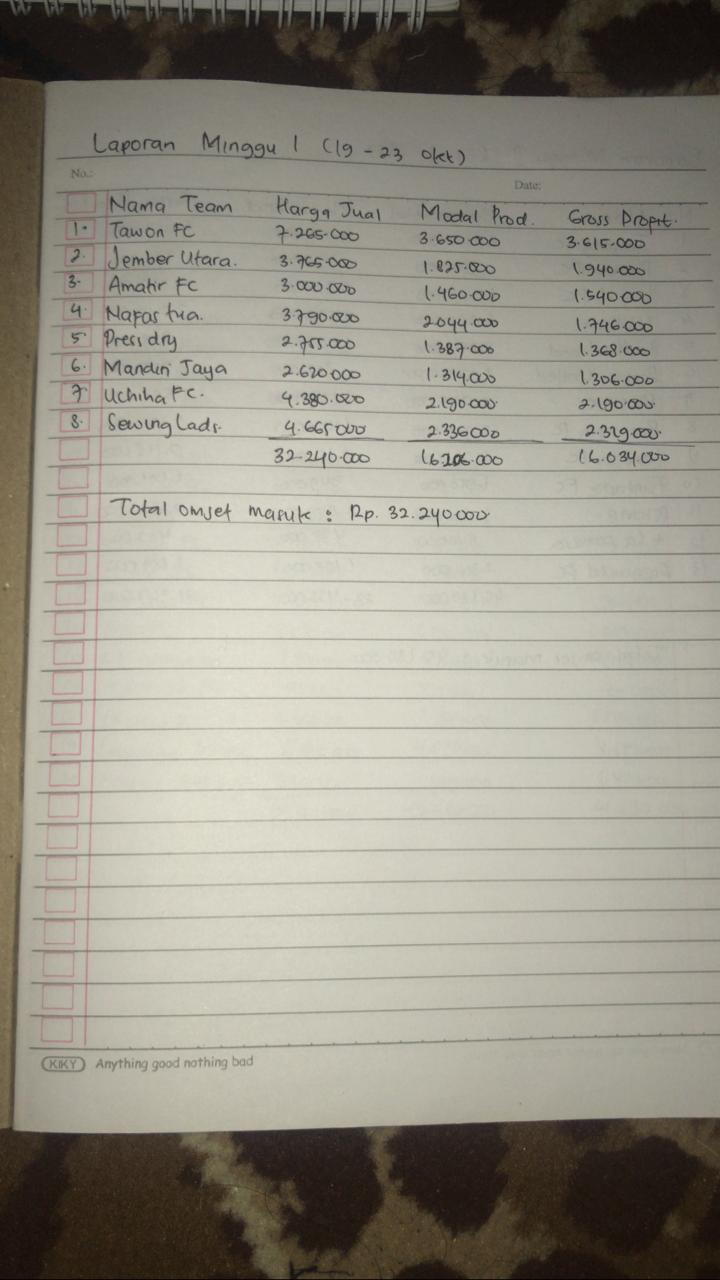 Laporan Minggu 1 (19 - 23 okt)
No.: Date:
Nama Team Harga Jual Modal Prod. Gross Profit.
1. Tawon FC 7.265.000 3.650.000 3.615.000
2. Jember Utara. 3.765.000 1.825.000 1.940.000
3. Amatir FC 3.000.000 1.460.000 1.540.000
4. Napas tua. 3.790.000 2.044.000 1.746.000
5. Pressdry 2.755.000 1.387.000 1.368.000
6. Mandiri Jaya 2.620.000 1.314.000 1.306.000
7. Uchiha FC. 4.380.000 2.190.000 2.190.000
8. Sewing Lads. 4.665.000 2.336.000 2.319.000
32.240.000 16.206.000 16.034.000
Total omset masuk : Rp. 32.240.000
KIKY Anything good nothing bad